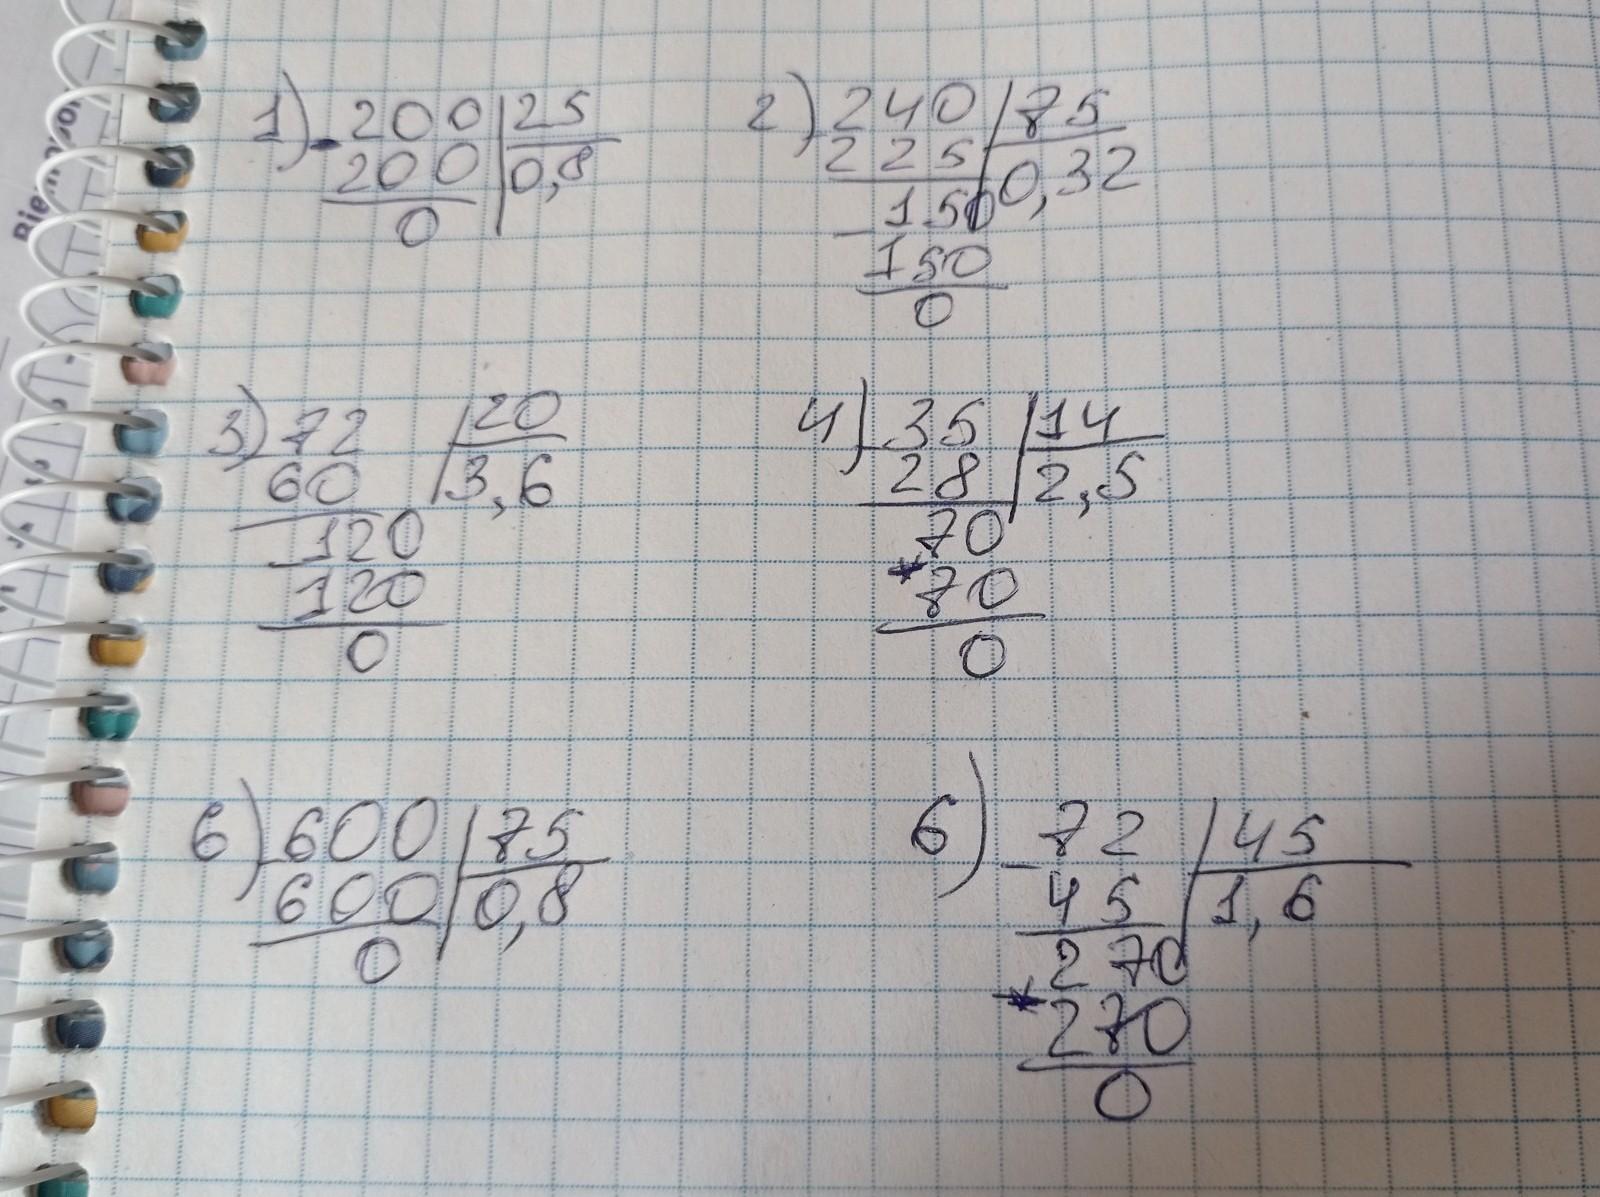 1) - 200 | 25
200 | 0,8
0
2) - 240 | 75
225 | 0,32
- 150
150
0
3) - 72 | 20
60 | 3,6
- 120
120
0
4) - 35 | 14
28 | 2,5
70
70
0
6) - 600 | 75
600 | 0,8
0
6) - 72 | 45
45 | 1,6
270
270
0